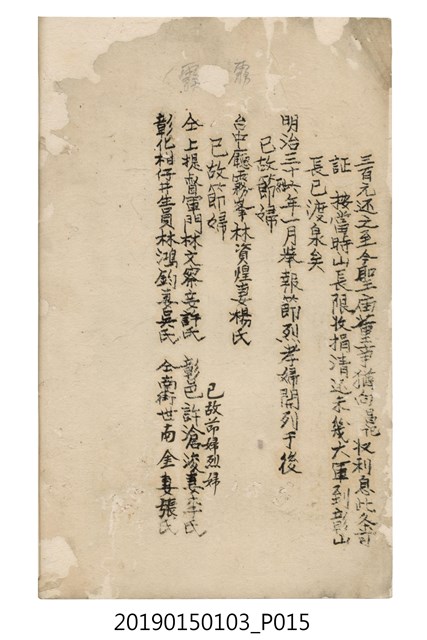 三百元还之至今聖庙董事猶向 收利息此久可
証 按當時山長限收捐清还未幾大軍到彰山
長已渡泉矣
明治三十六年一月举報節烈孝婦開列于後
已故節婦
台中廳霧峯林資煌妻楊氏
已故節婦
仝上提督軍門林文察妾許氏
彰化柑仔井生員林鴻鈞妻吳氏
已故節婦烈婦
彰邑許滄浚妻李氏
仝南街世南 金妻張氏
20190150103_P015